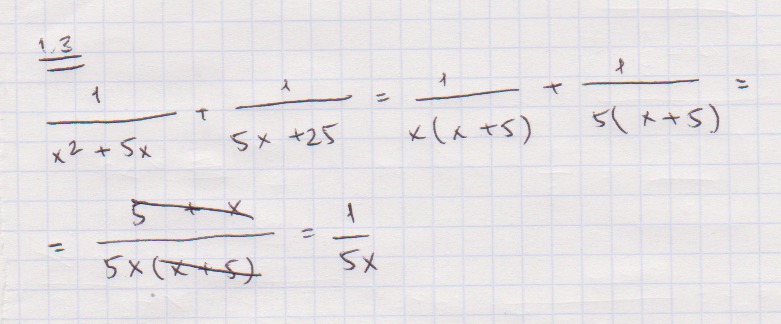 1.3
1/(x² + 5x) + 1/(5x + 25) = 1/(x(x + 5)) + 1/(5(x + 5)) =
= (5 + x)/(5x(x + 5)) = 1/(5x)